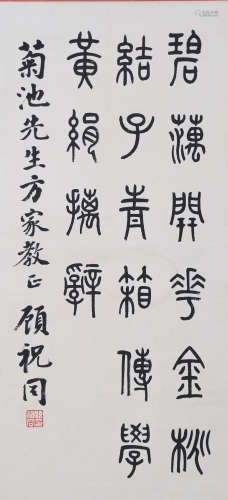 碧藕開花金桃
結子青箱傳學
黃絹摛辭
菊池先生方家教正 顧祝同